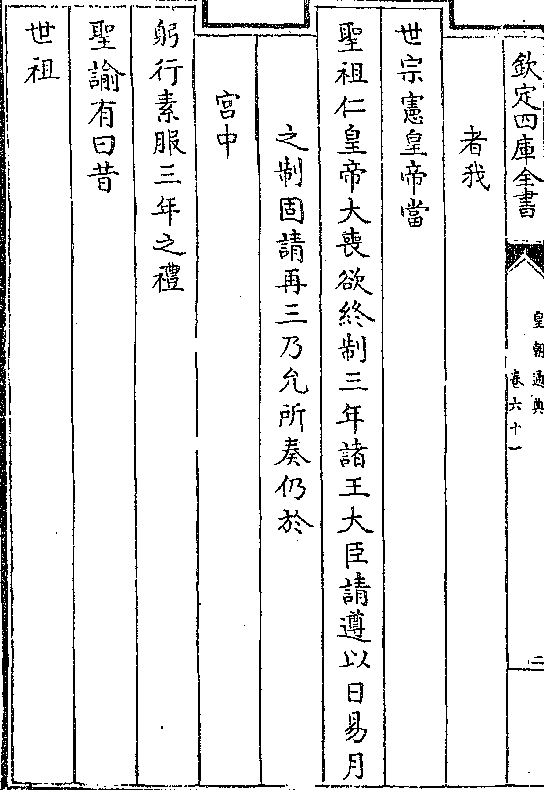 欽定四庫全書
皇朝通典
卷六十一
二
者我
世宗憲皇帝當
聖祖仁皇帝大喪欲終制三年諸王大臣請遵以日易月
之制固請再三乃允所奏仍於
宮中
躬行素服三年之禮
聖諭有曰昔
世祖